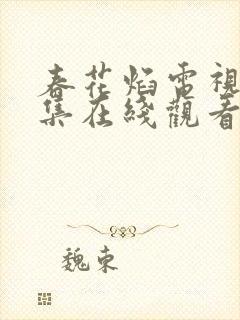 春花焰電視
集在綫觀看
魏東